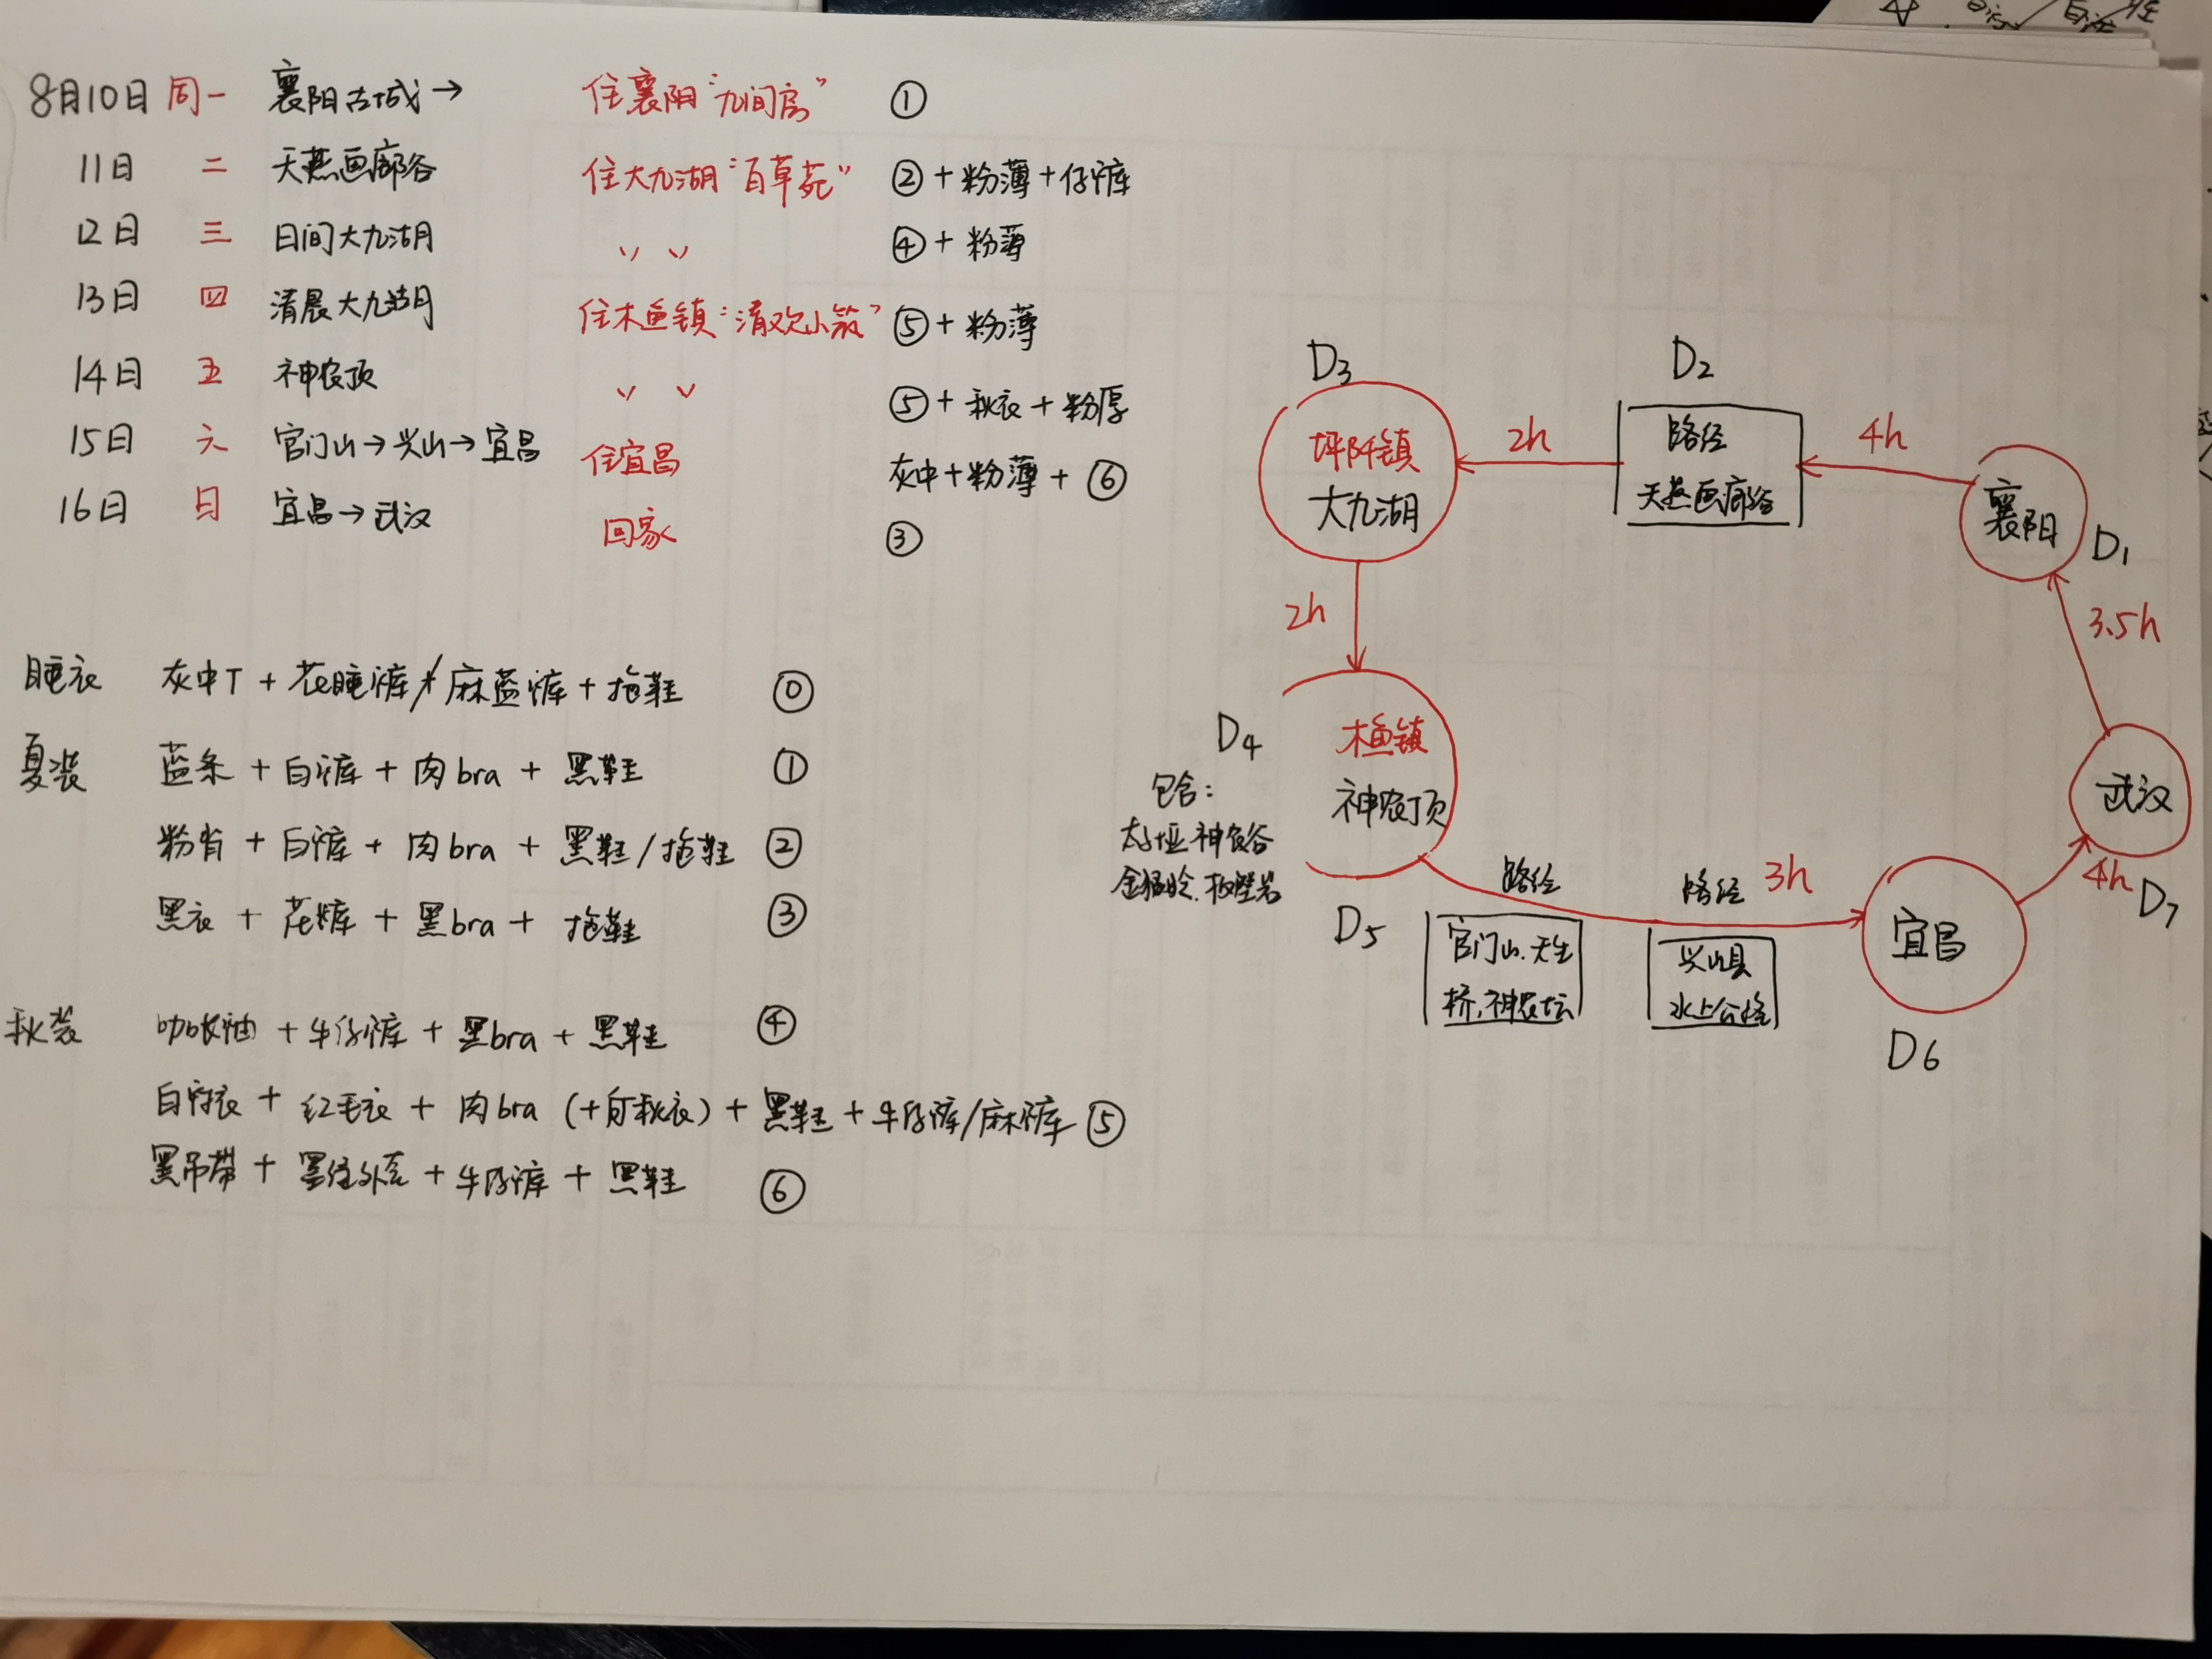 8月10日 周一 襄阳古城→ 住襄阳"九间房" ①
11日 二 天燕画廊谷 住大九湖"百草苑" ②+粉薄+仔裤
12日 三 日间大九湖 〃 ④+粉薄
13日 四 清晨大九湖 住木鱼镇"清欢小筑" ⑤+粉薄
14日 五 神农顶 〃 ⑤+秋衣+粉厚
15日 六 官门山→兴山→宜昌 住宜昌 灰中+粉薄+⑥
16日 日 宜昌→武汉 回家 ③
睡衣 灰中T+花睡裤/麻蓝裤+拖鞋 ⓪
夏装 蓝条+白裤+肉bra+黑鞋 ①
粉肖+白裤+肉bra+黑鞋/拖鞋 ②
黑衣+花裤+黑bra+拖鞋 ③
秋装 咖长袖+牛仔裤+黑bra+黑鞋 ④
白衬衣+红毛衣+肉bra(+白秋衣)+黑鞋+牛仔裤/麻裤 ⑤
黑吊带+外套+牛仔裤+黑鞋 ⑥
D1
襄阳
4h
D2
路经
天燕画廊谷
2h
D3
坪阡镇
大九湖
2h
D4
木鱼镇
神农顶
包含:
太子垭.神农谷
金猴岭.板壁岩
D5
路经
官门山.天生
桥.神农坛
路经
兴山县
水上公路
3h
宜昌
D6
4h
D7
武汉
3.5h